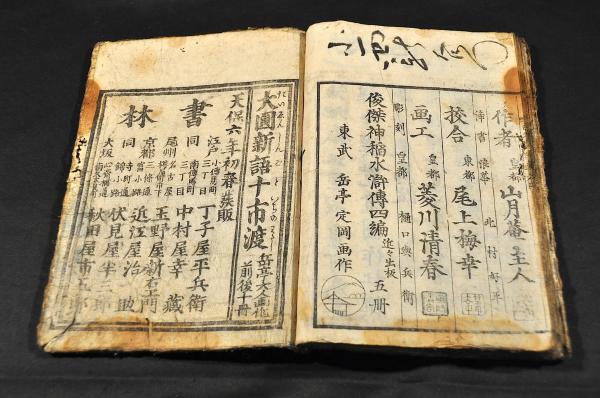 作者 皇都 山月菴主人
浄書 浪華 北村
校合 東都 尾上梅幸
画工 皇都 菱川清春
彫刻 皇都 樋口與兵衛
俊傑神稲水滸傳四編 近々出板 五冊
東武 岳亭定岡画作
大圓新語十市渡 岳亭大人画作 前後十冊
天保六年初春発販
書林
江戸 小傳馬町三丁目 丁子屋平兵衛
同 南傳馬町三丁目 中村屋幸藏
尾州 名古屋 玉野屋新右エ門
京都 三條通 近江屋治助
同 寺町通錦小路 伏見屋半三郎
大坂 心斎橋通 秋田屋市五郎